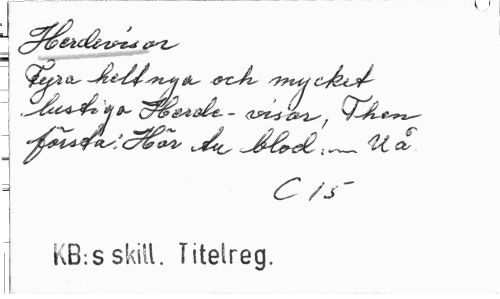 Herdevisor
Fyra helt nya och mycket
lustiga Herde-visor, Then
första: Hör du blod.— U å
C 15
KB:s skill. Titelreg.